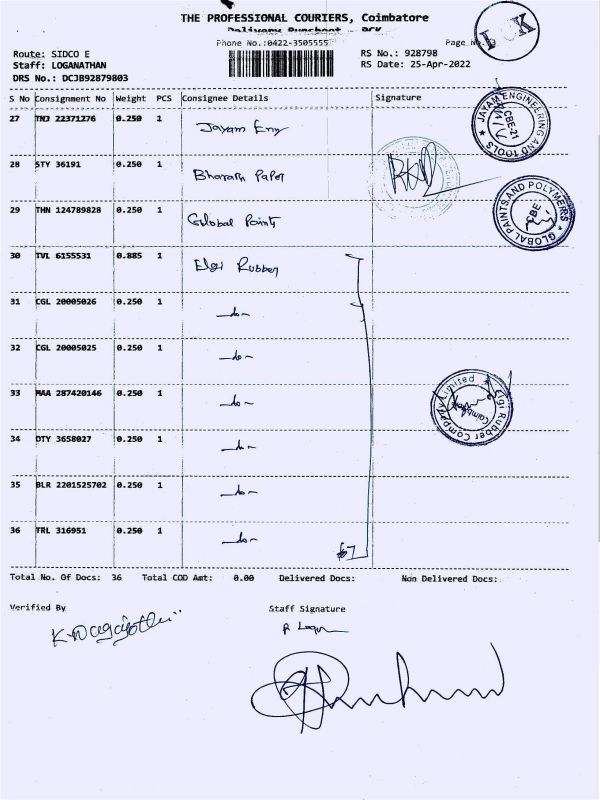 THE PROFESSIONAL COURIERS, Coimbatore
Delivery Runsheet - PCK
Phone No.:0422-3505555
Page No.
Route: SIDCO E
RS No.: 928798
Staff: LOGANATHAN
RS Date: 25-Apr-2022
DRS No.: DCJB92879803
S No Consignment No Weight PCS Consignee Details Signature
27 TNJ 22371276 0.250 1 Jayam Eng
JAYAM ENGINEERING AND TOOLS CBE-21
28 STY 36191 0.250 1 Bharath Paper
29 THN 124789828 0.250 1 Global Paints
GLOBAL PAINTS AND POLYMERS CBE
30 TVL 6155531 0.885 1 Elgi Rubber
31 CGL 20005026 0.250 1 -do-
32 CGL 20005025 0.250 1 -do-
33 MAA 287420146 0.250 1 -do-
Elgi Rubber Company Limited Coimbatore
34 DTY 3658027 0.250 1 -do-
35 BLR 2201525702 0.250 1 -do-
36 TRL 316951 0.250 1 -do-
Total No. Of Docs: 36 Total COD Amt: 0.00 Delivered Docs: Non Delivered Docs:
Verified By
Staff Signature